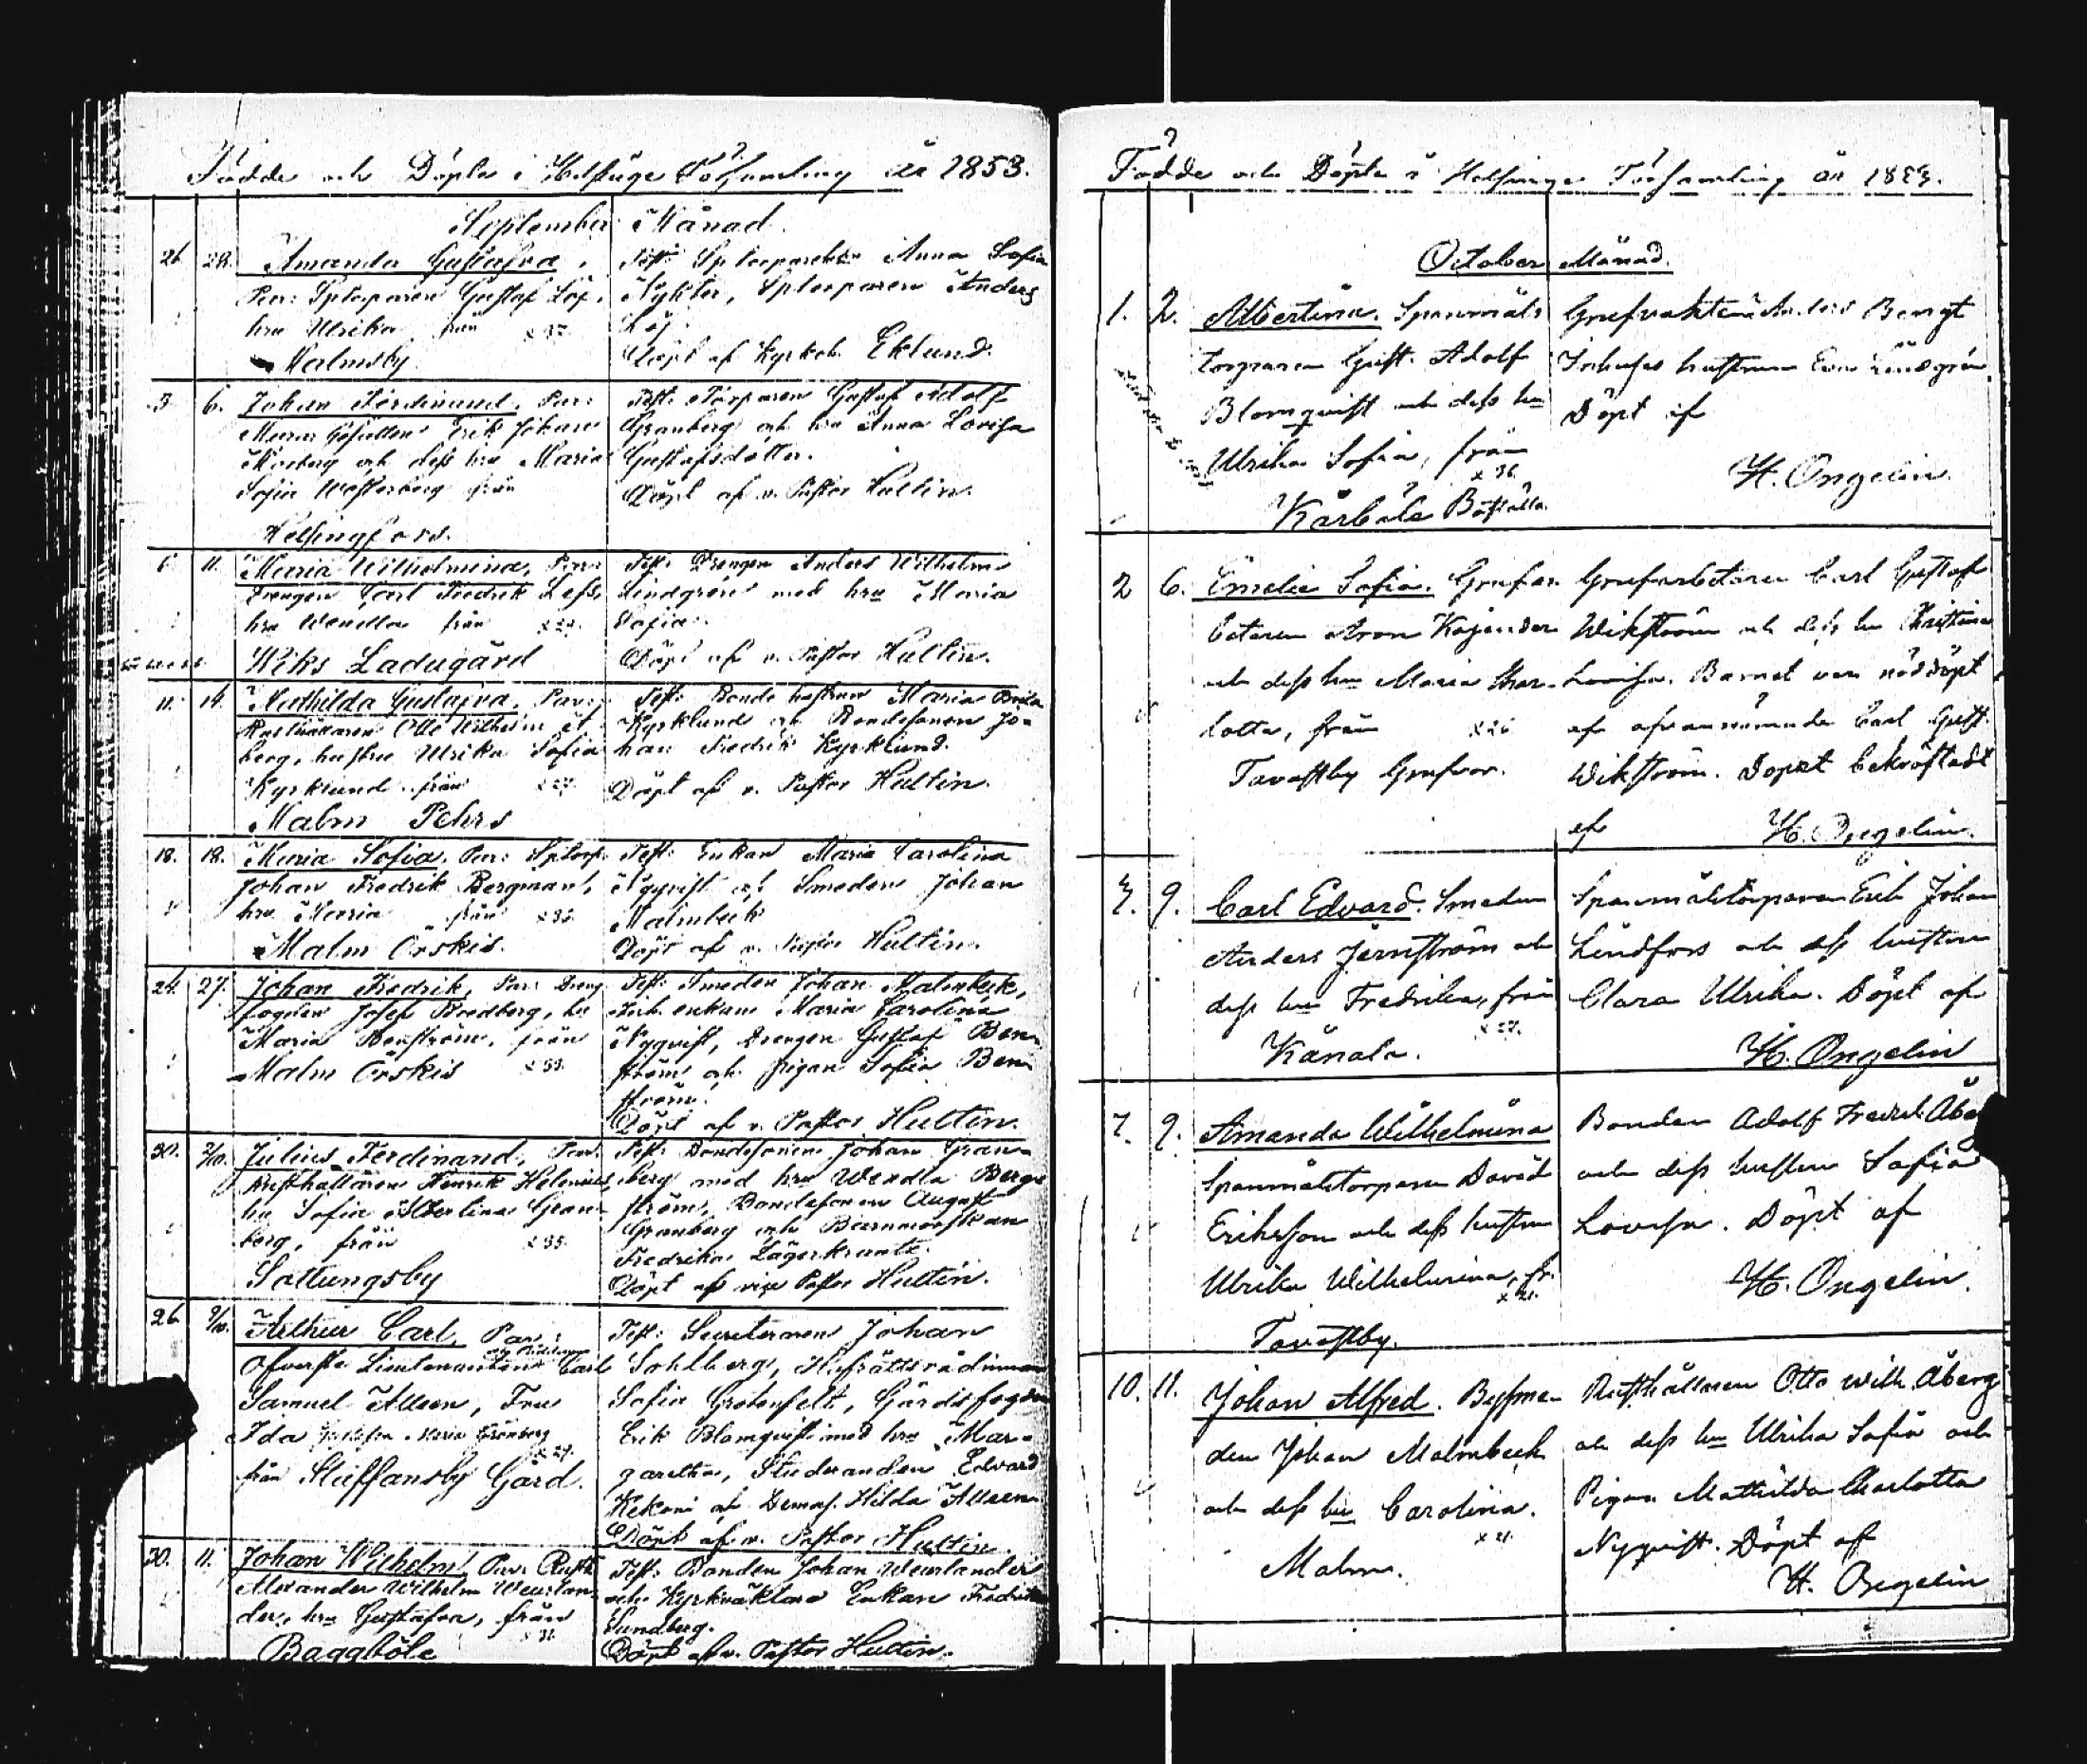 Födde och Döpte i Helsinge Församling år 1853.
September Månad.
26 28. Amanda Gustafva,
Par: Sptorparen Gustaf Löf,
hru Ulrika från x 37.
Malmsby.
Test: Sptorparenkan Anna Sofia
Nykter, Sptorparen Anders
Löf.
Döpt af Kyrkoh. Eklund.
3 6. Johan Ferdinand. Par:
Murar Gesällen Erik Johan
och dess hru Maria
Sofia Westerberg från
Helsingfors.
Test: Torparen Gustaf Adolf
Granberg och hru Anna Lovisa
Gustafsdotter.
Döpt af v. Pastor Hultin.
6 11. Maria Wilhelmina, Par:
Drengen Carl Fredrik
hru Wendla från x 29.
Wiks Ladugård
Test: Drengen Anders Wilhelm
Lindgren med hru Maria
Sofia.
Döpt af v. Pastor Hultin.
11. 14. Mathilda Gustafva. Par:
Rusthållaren Otto Wilhelm Å-
berg, hustru Ulrika Sofia
Kyrklund från x 27.
Malm Pehrs
Test: Bonde hustrun Maria
Kyrklund och Bondesonen Jo-
han Fredrik Kyrklund.
Döpt af v. Pastor Hultin.
18. 18. Maria Sofia. Par: Sptorp.
Johan Fredrik Bergman,
hru Maria från
Malm Örskis.
Test: Enkan Maria Carolina
Nyqvist och Smeden Johan
Malmbeck
Döpt af v. Pastor Hultin.
24. 27. Johan Fredrik, Par: Dreng
fogden Josef Bredberg, hu
Maria Benström, från
Malm Örskis x 33.
Test: Smeden Johan Malmbeck,
enkan Maria Carolina
Nyqvist, Drengen Gustaf Ben-
ström och pigan Sofia Ben-
ström.
Döpt af v. Pastor Hultin.
30. 2/10. Julius Ferdinand, Par:
Rusthållaren Henrik Helenius,
hu Sofia Albertina Gran-
berg, från x 35.
Sottungsby
Test: Bondesonen Johan Gran-
berg med hru Wendla Berg-
ström, Bondesonen August
Granberg och Barnmorskan
Fredrika Lagerkrantz.
Döpt af vice Pastor Hultin.
26 9/10. Arthur Carl, Par:
Ofverste Lieutenanten och Riddaren Carl
Samuel Alleen, Fru
Ida Gustafva Maria Grönberg
x 27.
från Staffansby Gård.
Test: Secreteraren Johan
Sohlberg, Hofrättsrådinnan
Sofia Grotenfelt, Gårdsfogden
Erik Blomqvist med hru Mar-
garetha, Studeranden Edvard
Kekoni och Demos. Hilda Alleen.
Döpt af v. Pastor Hultin.
30. 11. Johan Wilhelm Par: Rusth.
Alexander Wilhelm Weurlan-
der, hru Gustafva, från
Baggböle
Test: Bonden Johan Weurlander
och Kyrkväktare Enkan Fredrika
Sundberg.
Döpt af v. Pastor Hultin.
Födde och Döpte i Helsinge Församling år 1853.
October Månad.
1. 2. Albertina. Spanmåls
torparen Gust. Adolf
Blomqvist och dess hu
Ulrika Sofia, från
x 36.
Kårböle Boställe.
Grufvaktaren Anders Bengt
hustrun Eva Lindgren.
Döpt af
H. Ongelin.
2 6. Emelie Sofia. Grufar-
betaren Aron Kajander
och dess hu Maria Char-
lotta, från x 26
Tavastby Grufvor.
Grufarbetaren Carl Gustaf
Wikström och dess hu Christina
Lovisa. Barnet var nöddöpt
af ofvannämnde Carl Gust.
Wikström. Dopet bekräftadt
af H. Ongelin.
3. 9. Carl Edvard. Smeden
Anders Jernström och
dess hu Fredrika, från
x 27.
Kånala.
Spanmålstorparen Erik Johan
Lindfors och dess hustru
Clara Ulrika. Döpt af
H. Ongelin
7. 9. Amanda Wilhelmina
Spanmålstorparen David
Eriksson och dess hustru
Ulrika Wilhelmina, fr.
x 21.
Tavastby.
Bonden Adolf Fredrik Åberg
och dess hustru Sofia
Lovisa. Döpt af
H. Ongelin.
10. 11. Johan Alfred. Bysme-
den Johan Malmbeck
och dess hu Carolina.
x 21.
Malm.
Rusthållaren Otto Wilh. Åberg
och dess hu Ulrika Sofia och
Pigan Mathilda Charlotta
Nyqvist. Döpt af
H. Ongelin